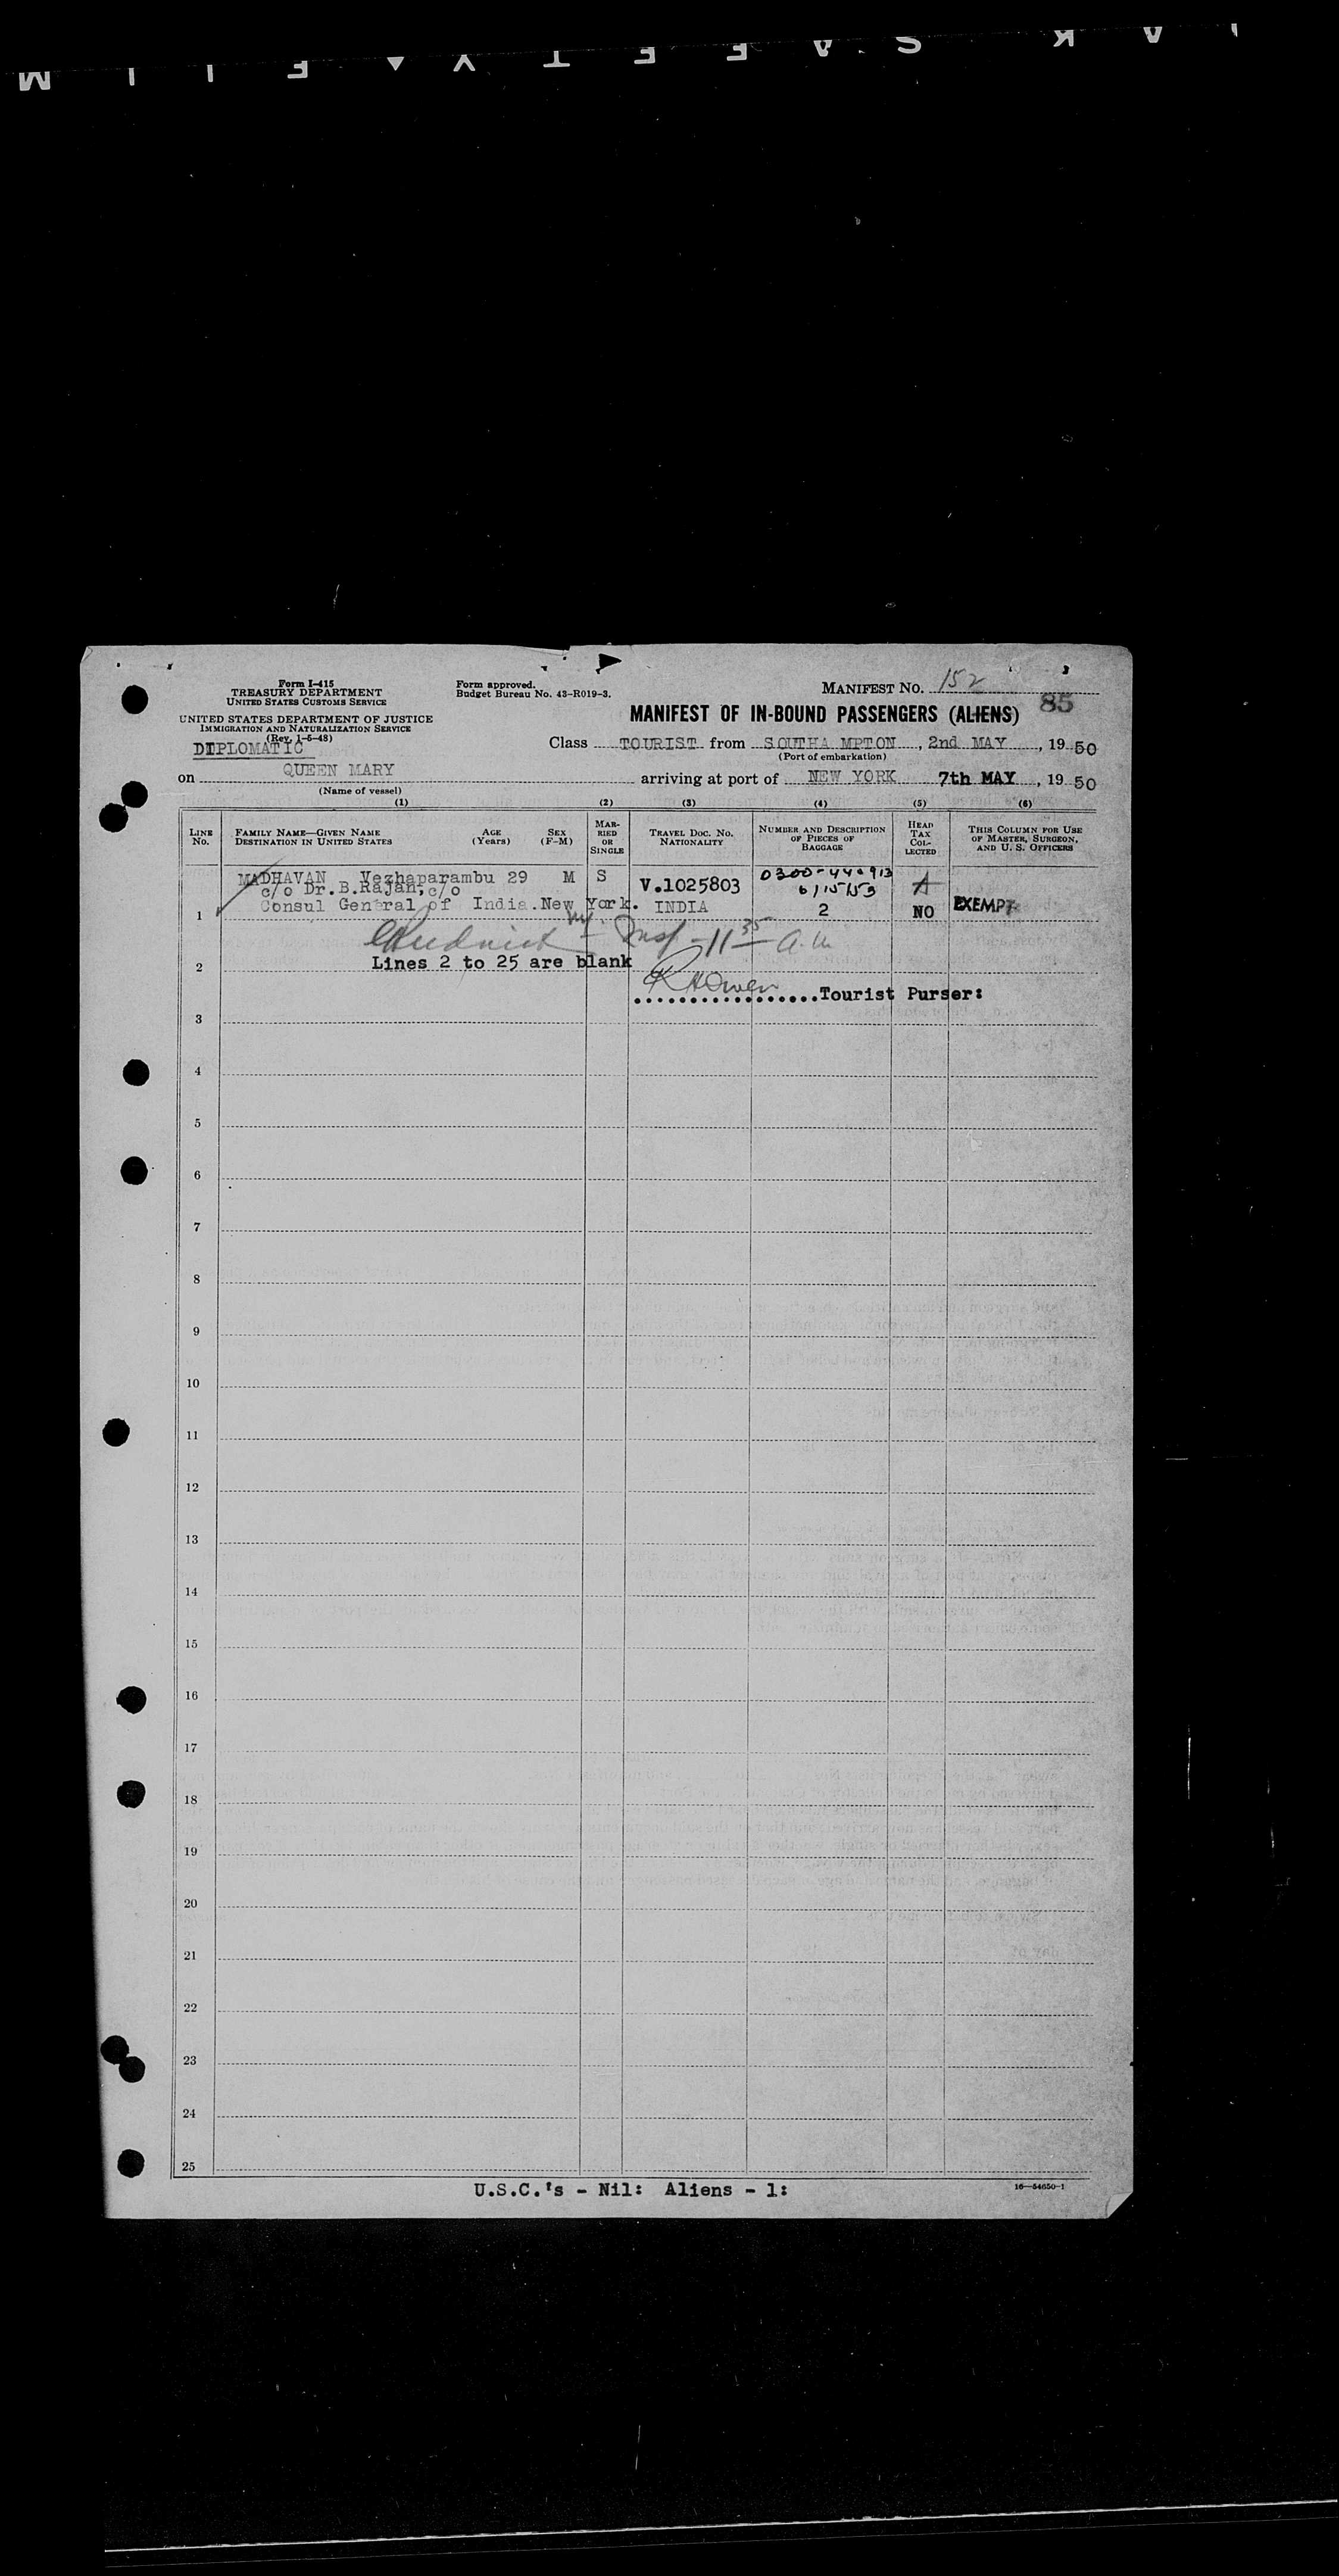 Form I-415
TREASURY DEPARTMENT
UNITED STATES CUSTOMS SERVICE
UNITED STATES DEPARTMENT OF JUSTICE
IMMIGRATION AND NATURALIZATION SERVICE
(Rev. 1-5-48)
Form approved.
Budget Bureau No. 43-R019-3.
MANIFEST NO. 152
85
MANIFEST OF IN-BOUND PASSENGERS (ALIENS)
DIPLOMATIC
Class TOURIST from SOUTHAMPTON, 2nd MAY, 19 50
(Port of embarkation)
on QUEEN MARY arriving at port of NEW YORK 7th MAY, 19 50
(Name of vessel)
(1) (2) (3) (4) (5) (6)
LINE NO.
FAMILY NAME—GIVEN NAME
DESTINATION IN UNITED STATES
AGE (Years)
SEX (F-M)
MARRIED OR SINGLE
TRAVEL DOC. NO.
NATIONALITY
NUMBER AND DESCRIPTION OF PIECES OF BAGGAGE
HEAD TAX COLLECTED
THIS COLUMN FOR USE OF MASTER, SURGEON, AND U. S. OFFICERS
MADHAVAN Vezhaparambu 29 M S V.1025803 0300-440913
c/o Dr.B.Rajan, c/o 6/15/53 A
1 Consul General of India. New York. INDIA 2 NO EXEMPT
Insp - 11 35 a.m
2 Lines 2 to 25 are blank
R H Owen
..................Tourist Purser:
3
4
5
6
7
8
9
10
11
12
13
14
15
16
17
18
19
20
21
22
23
24
25
U.S.C.'s - Nil: Aliens - 1:
16—54650-1